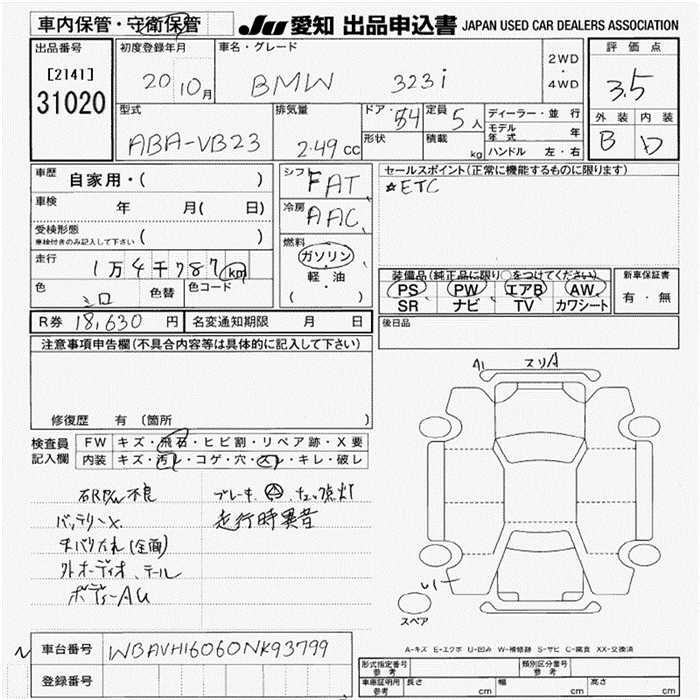 車内保管・守衛保管
JU 愛知 出品申込書 JAPAN USED CAR DEALERS ASSOCIATION
出品番号
[2141]
31020
初度登録年月
20 10月
車名・グレード
BMW 323i
2WD・4WD
評価点
3.5
型式
ABA-VB23
排気量
2.49 cc
ドア・
形状
定員
5人
積載
kg
ディーラー・並行
モデル年式 年
ハンドル 左・右
外装 内装
B D
車歴 自家用・( )
車検 年 月( 日)
受検形態
車検付きのみ記入して下さい ( )
走行
1万4千787km
色
シロ
色替
色コード
シフト
FAT
冷房
AAC
燃料
ガソリン・軽油
( ・ )
セールスポイント(正常に機能するものに限ります)
☆ETC
装備品(純正品に限り○をつけてください)
PS PW エアB AW
SR ナビ TV カワシート
新車保証書
有・無
R券 18,630 円
名変通知期限 月 日
後日品
注意事項申告欄(不具合内容等は具体的に記入して下さい)
修復歴 有 (箇所
検査員記入欄
FW キズ・飛石・ヒビ割・リペア跡・X要
内装 キズ・汚レ・コゲ・穴・スレ・キレ・破レ
スリA
不良
バッテリーx
ブレーキ
走行時異音
外オーディオ、テール
ボディーAU
スペア
車台番号 WBAVH16060NK93799
登録番号
A-キズ E-エクボ U-凹み W-補修跡 S-サビ C-腐食 XX-交換済
形式指定番号 参考
類別区分番号 参考
車庫証明用 参考
長さ cm
幅 cm
高さ cm